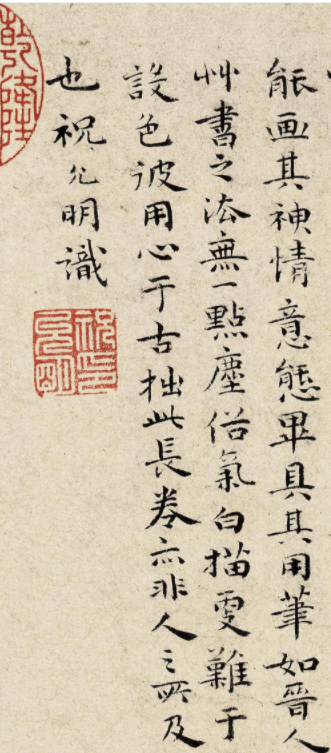 能画其神情意態畢具其用筆如晋人
艸書之法無一點塵俗氣白描更難于
設色彼用心于古拙此長卷亦非人之所及
也祝允明識
祝允明印
乾隆